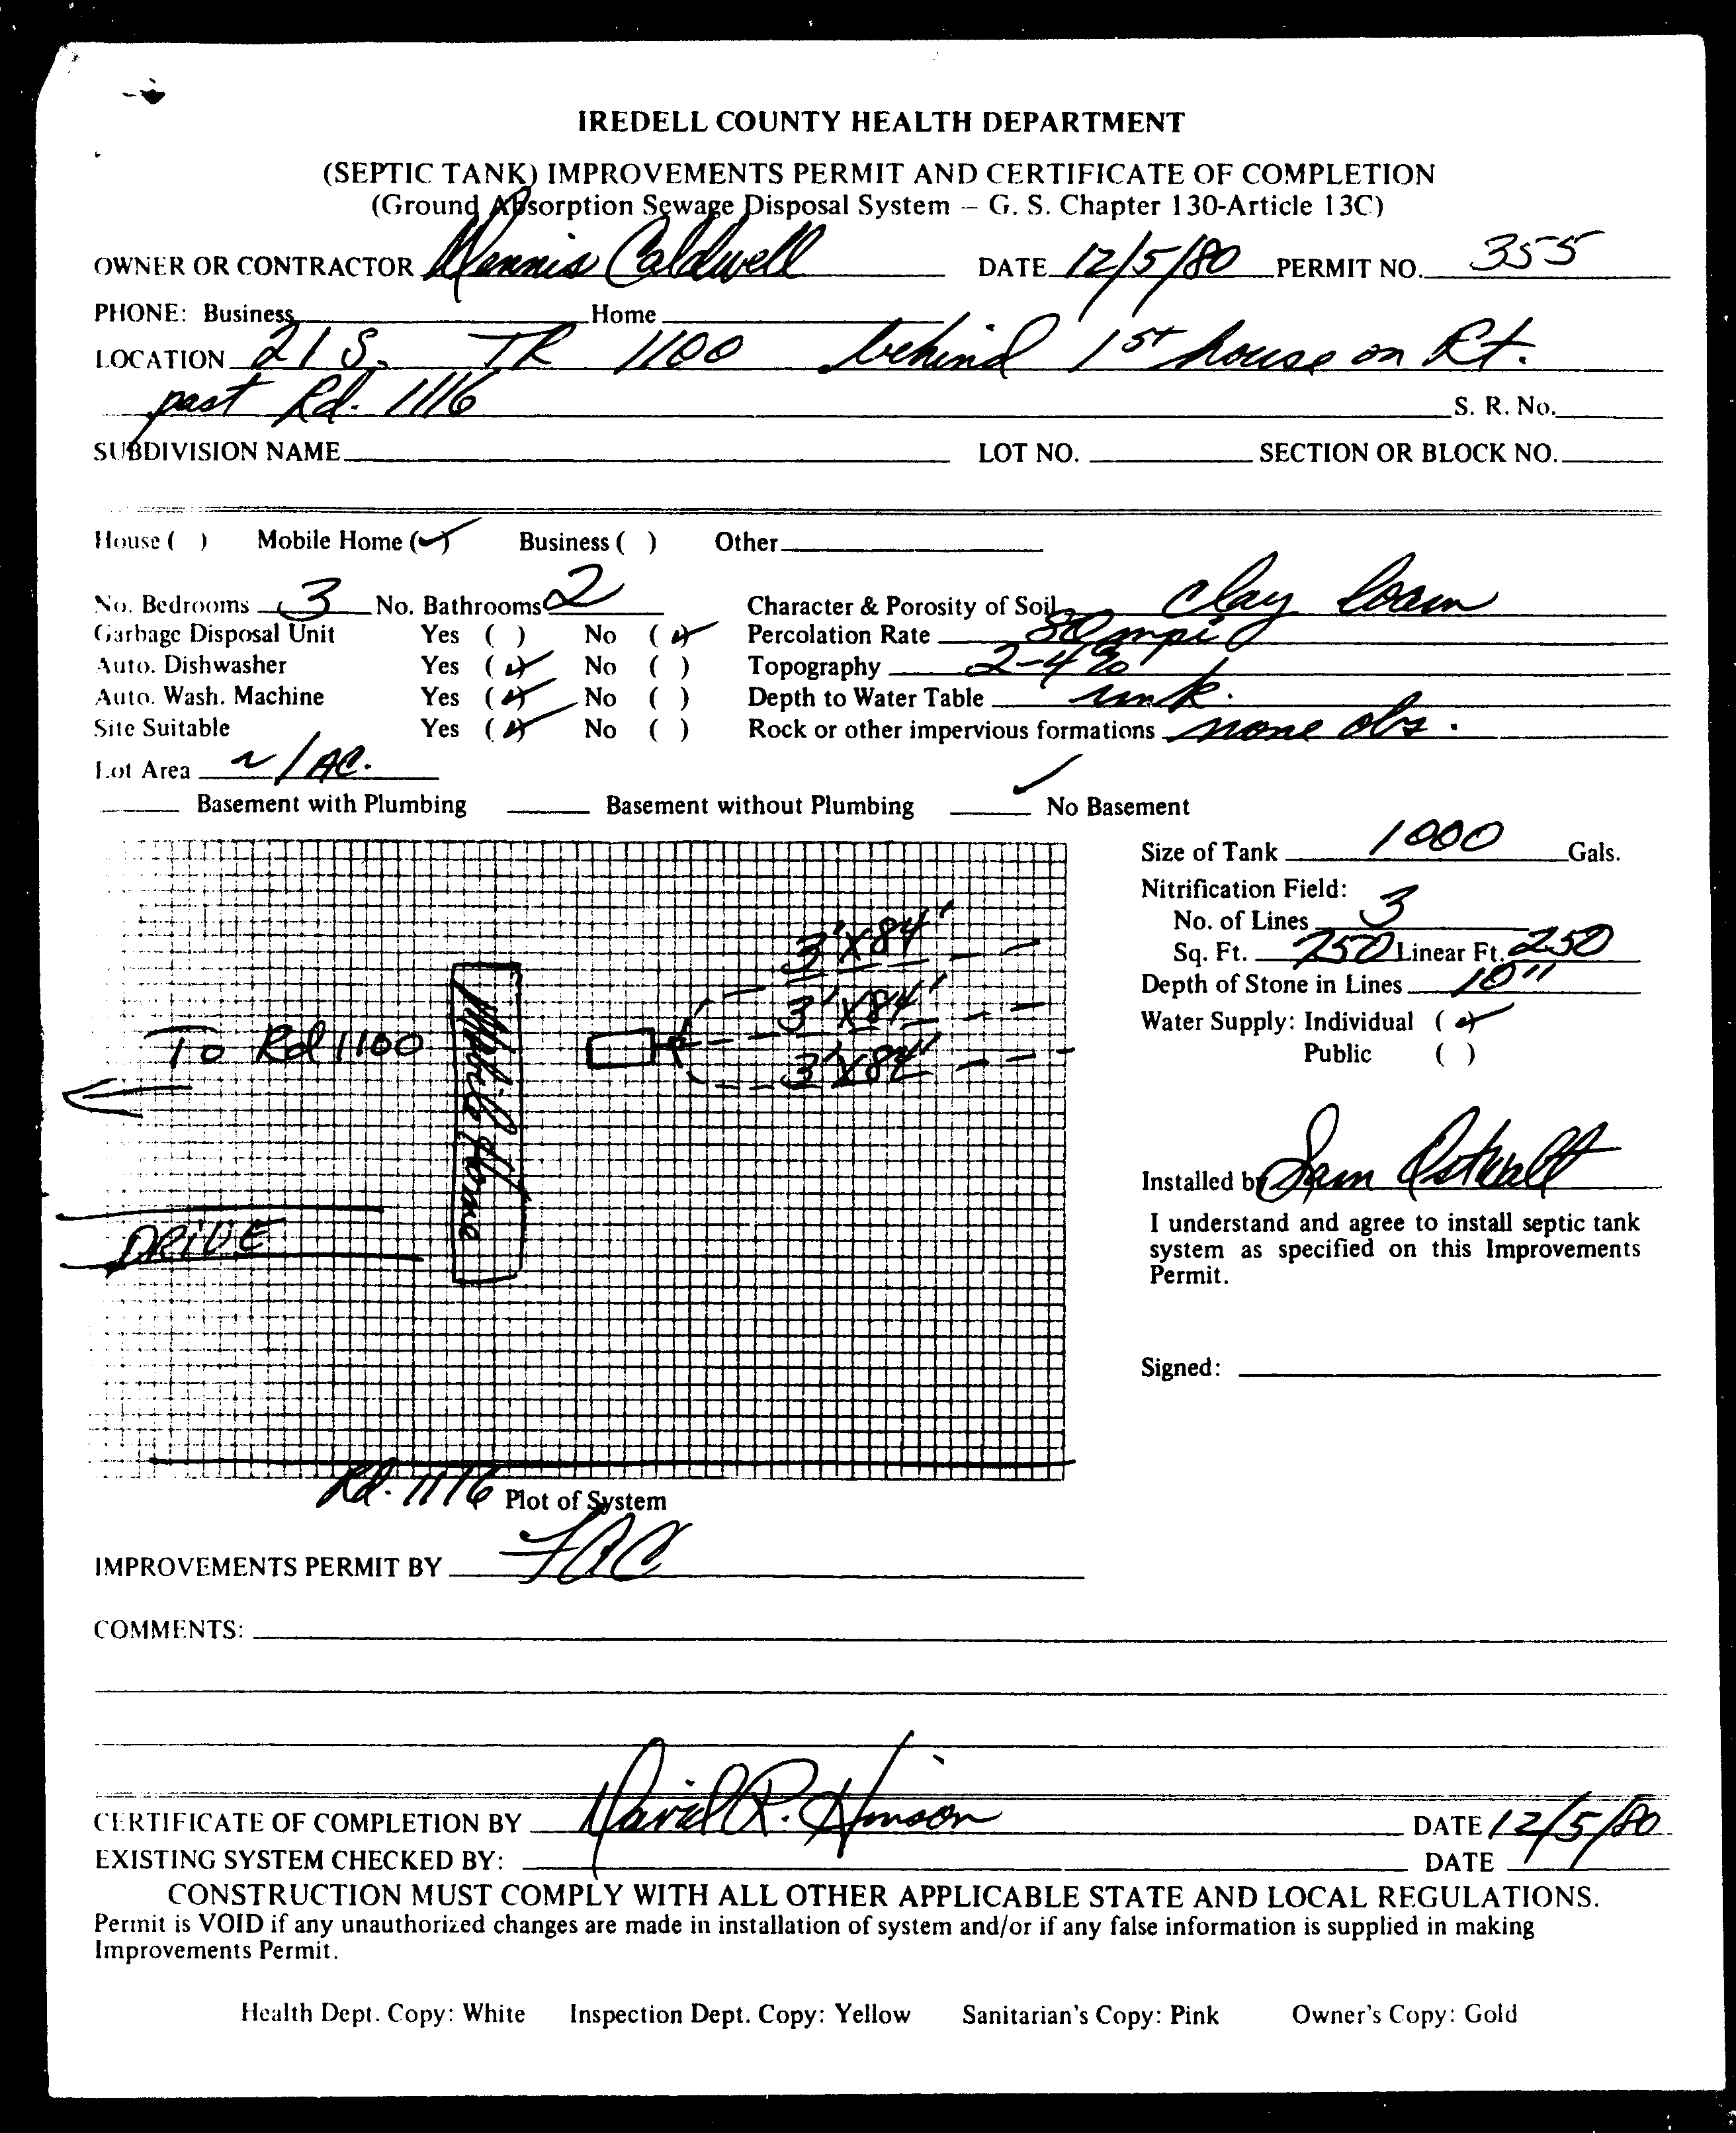 IREDELL COUNTY HEALTH DEPARTMENT
(SEPTIC TANK) IMPROVEMENTS PERMIT AND CERTIFICATE OF COMPLETION
(Ground Absorption Sewage Disposal System – G. S. Chapter 130-Article 13C)
OWNER OR CONTRACTOR Dennis Caldwell DATE 12/5/80 PERMIT NO. 355
PHONE: Business Home
LOCATION 21 S. TR 1100 behind 1st house on Rt.
past Rd. 1116 S. R. No.
SUBDIVISION NAME LOT NO. SECTION OR BLOCK NO.
House ( ) Mobile Home (✓) Business ( ) Other
No. Bedrooms 3 No. Bathrooms 2 Character & Porosity of Soil clay loam
Garbage Disposal Unit Yes ( ) No (✓) Percolation Rate 80 mpi
Auto. Dishwasher Yes (✓) No ( ) Topography 2-4%
Auto. Wash. Machine Yes (✓) No ( ) Depth to Water Table unk.
Site Suitable Yes (✓) No ( ) Rock or other impervious formations none obs.
Lot Area ~ 1 AC.
Basement with Plumbing Basement without Plumbing ✓ No Basement
Size of Tank 1000 Gals.
Nitrification Field:
No. of Lines 3
Sq. Ft. 750 Linear Ft. 250
Depth of Stone in Lines 10"
Water Supply: Individual (✓)
Public ( )
3'X84'
3'X84'
3'X82'
To Rd 1100
Mobile Home
DRIVE
Installed by Sam Ostwalt
I understand and agree to install septic tank
system as specified on this Improvements
Permit.
Signed:
Rd. 1116 Plot of System
IMPROVEMENTS PERMIT BY
COMMENTS:
CERTIFICATE OF COMPLETION BY David R. Hinson DATE 12/5/80
EXISTING SYSTEM CHECKED BY: DATE
CONSTRUCTION MUST COMPLY WITH ALL OTHER APPLICABLE STATE AND LOCAL REGULATIONS.
Permit is VOID if any unauthorized changes are made in installation of system and/or if any false information is supplied in making
Improvements Permit.
Health Dept. Copy: White Inspection Dept. Copy: Yellow Sanitarian's Copy: Pink Owner's Copy: Gold